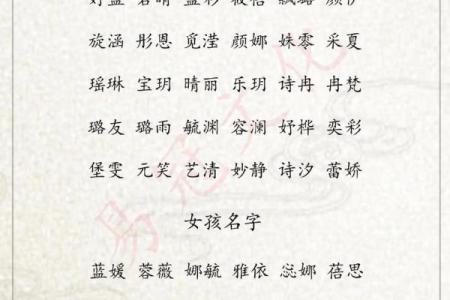 旋涵 彤恩 觅滢 颜娜 姝零 采夏
瑶琳 宝玥 晴丽 乐玥 诗冉 冉梵
璐友 璐雨 毓渊 容澜 妤桦 奕彩
堡雯 元笑 艺清 妙静 诗汐 蕾娇
女孩名字
蓝媛 蓉薇 娜毓 雅依 惢娜 蓓思